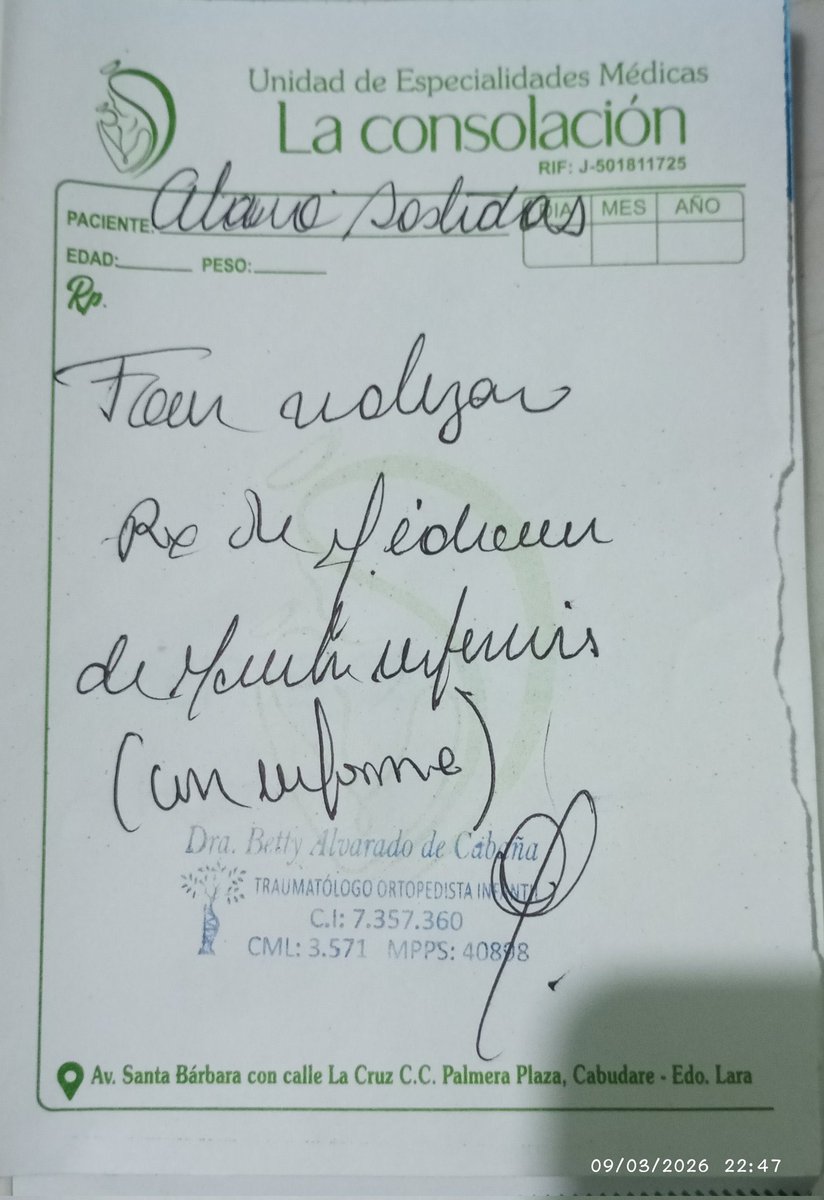 Unidad de Especialidades Médicas
La consolación
RIF: J-501811725
PACIENTE: DIA MES AÑO
EDAD: PESO:
Rp.
Favor realizar
Rx de Medicion
de Miembros inferiores
(con informe)
Dra. Betty Alvarado de Cabaña
TRAUMATÓLOGO ORTOPEDISTA INFANTIL
C.I: 7.357.360
CML: 3.571 MPPS: 40898
Av. Santa Bárbara con calle La Cruz C.C. Palmera Plaza, Cabudare - Edo. Lara
09/03/2026 22:47